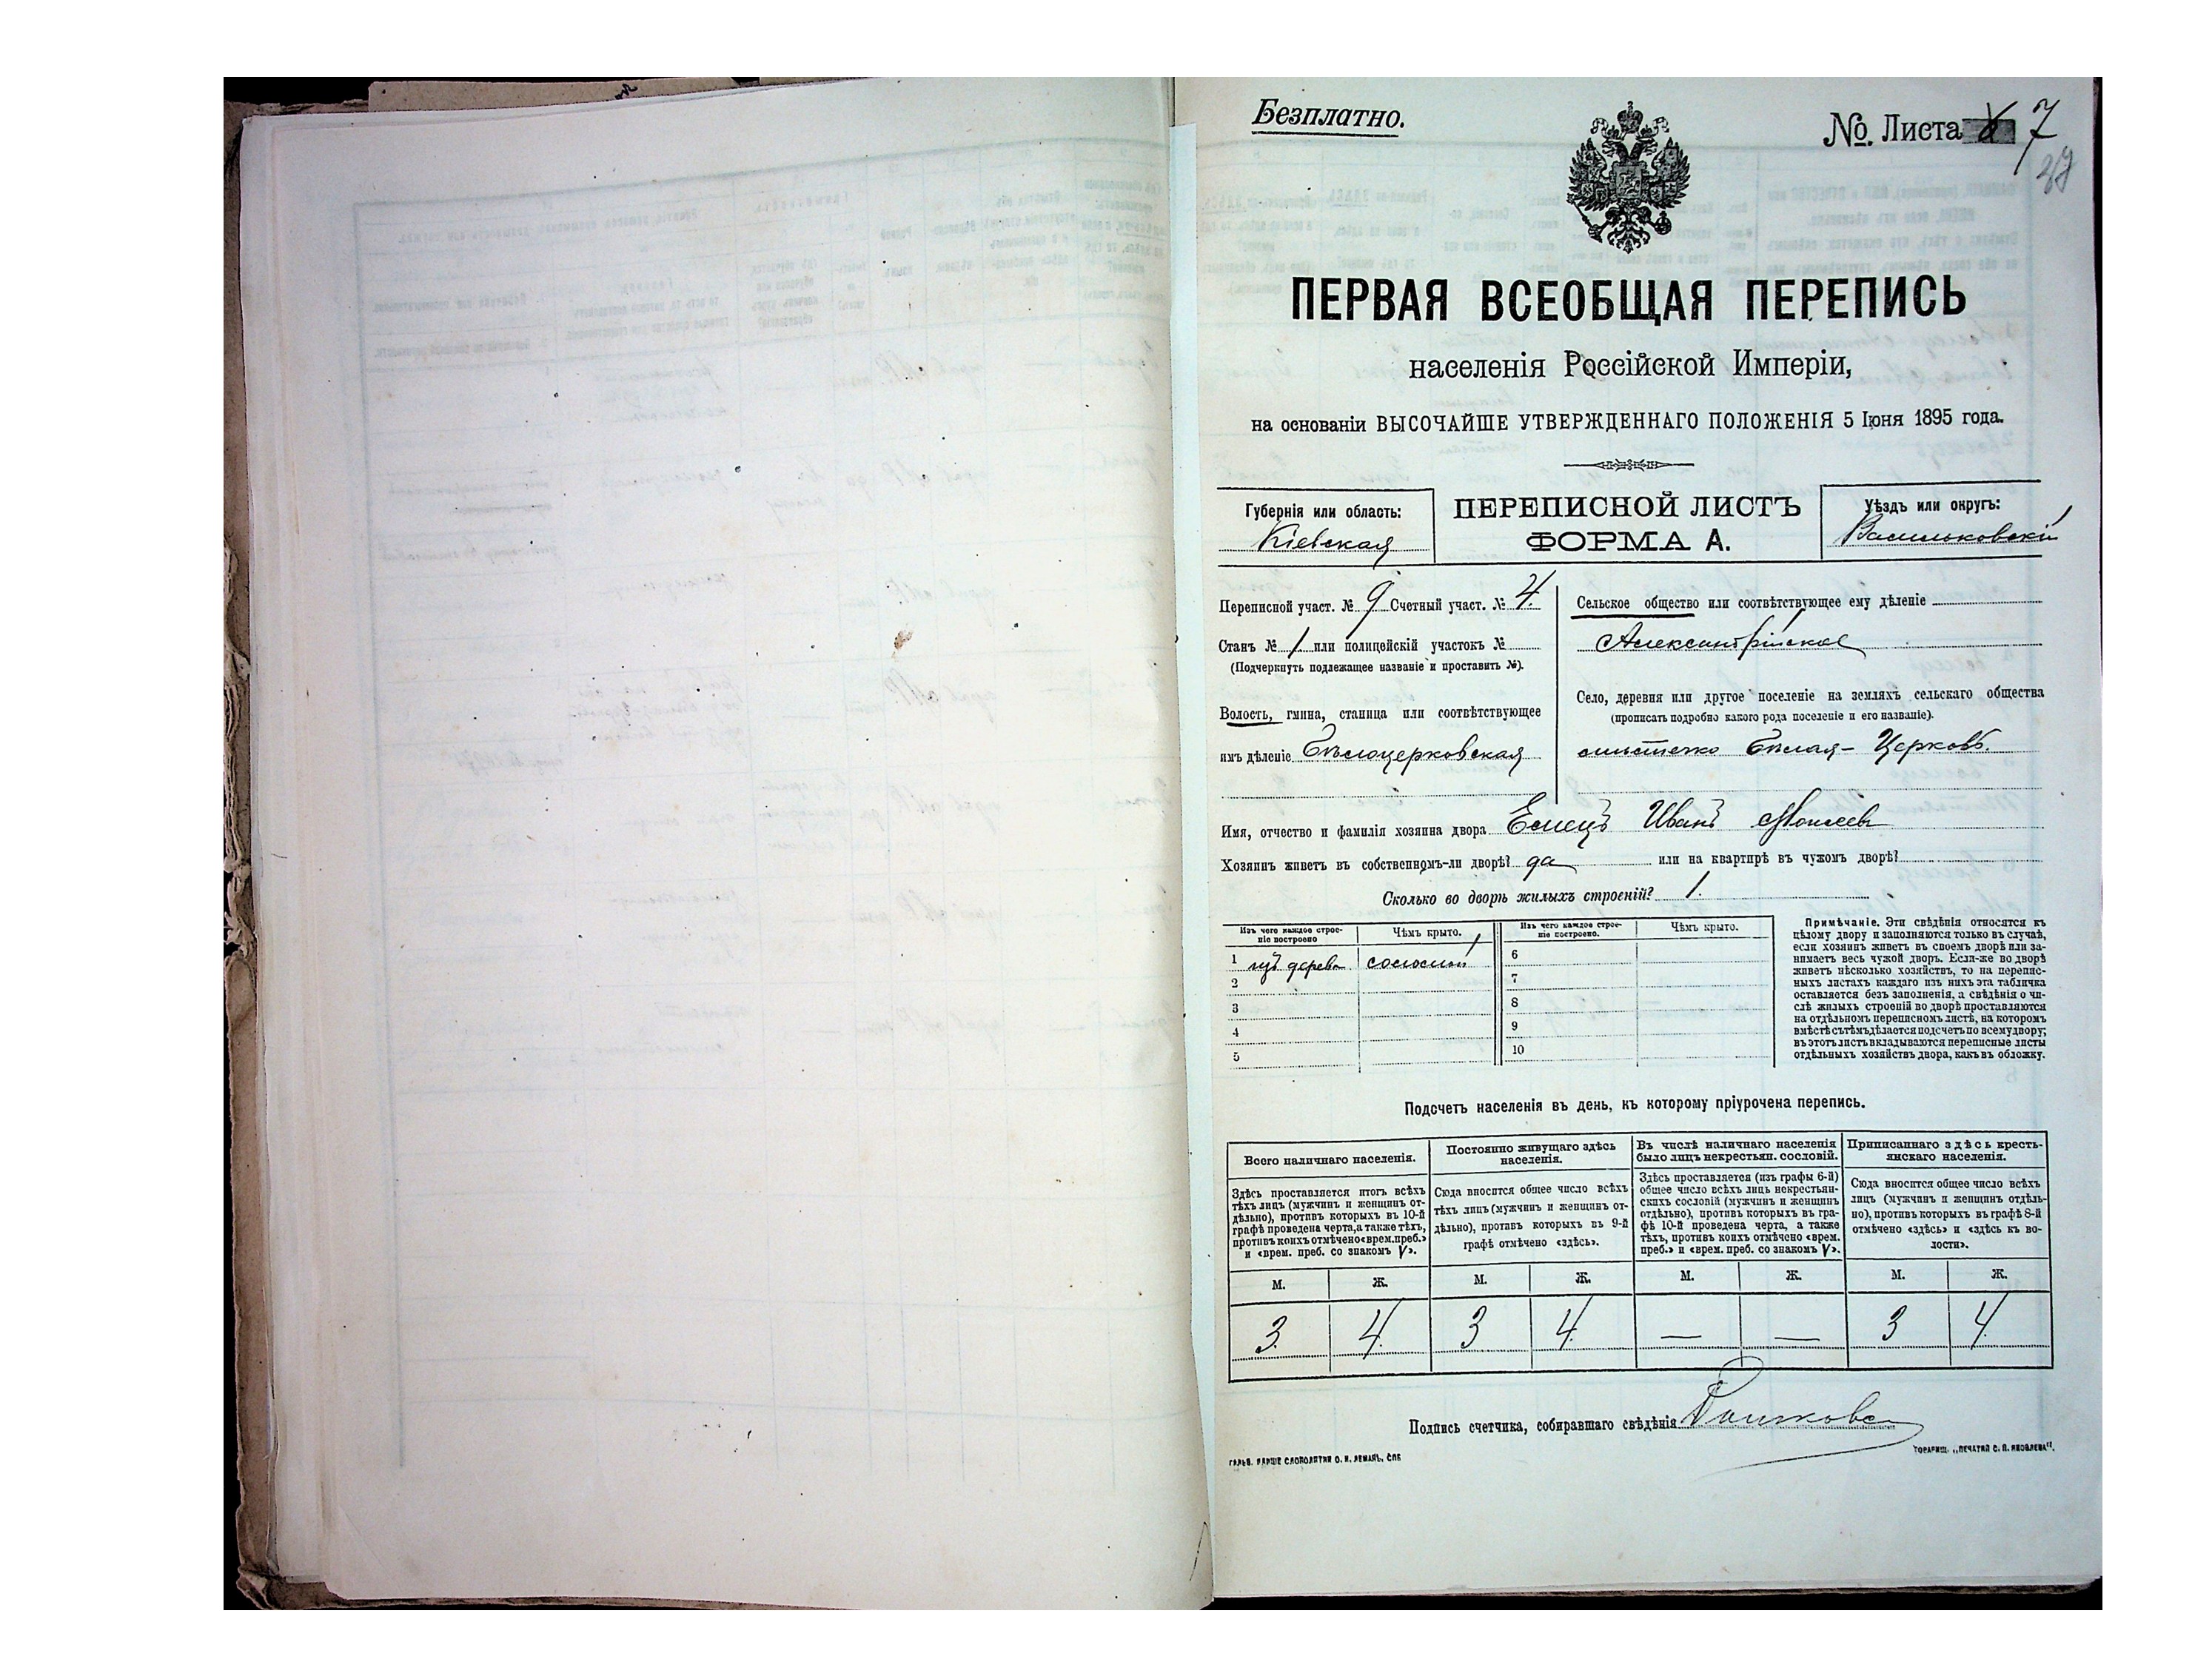 Безплатно.
№ Листа 7
37
ПЕРВАЯ ВСЕОБЩАЯ ПЕРЕПИСЬ
населенія Россійской Имперіи,
на основаніи ВЫСОЧАЙШЕ УТВЕРЖДЕННАГО ПОЛОЖЕНІЯ 5 Іюня 1895 года.
Губернія или область:
Кіевская
ПЕРЕПИСНОЙ ЛИСТЪ
ФОРМА А.
Уѣздъ или округъ:
Васильковскій
Переписной участ. № 9 Счетный участ. № 4.
Станъ № 1 или полицейскій участокъ №
(Подчеркнуть подлежащее названіе и проставить №).
Волость, гмина, станица или соотвѣтствующее
имъ дѣленіе Бѣлоцерковская
Сельское общество или соотвѣтствующее ему дѣленіе
Александрійское
Село, деревня или другое поселеніе на земляхъ сельскаго общества
(прописать подробно какого рода поселеніе и его названіе).
мѣстечко Бѣлая-Церковь.
Имя, отчество и фамилія хозяина двора Емецъ Иванъ Моисеевъ
Хозяинъ живетъ въ собственномъ-ли дворѣ? да или на квартирѣ въ чужомъ дворѣ?
Сколько во дворѣ жилыхъ строеній? 1.
Изъ чего каждое строе-
ніе построено
Чѣмъ крыто.
1 изъ дерева соломой
2
3
4
5
Изъ чего каждое строе-
ніе построено.
Чѣмъ крыто.
6
7
8
9
10
Примѣчаніе. Эти свѣдѣнія относятся къ
цѣлому двору и заполняются только въ случаѣ,
если хозяинъ живетъ въ своемъ дворѣ или за-
нимаетъ весь чужой дворъ. Если-же во дворѣ
живетъ нѣсколько хозяйствъ, то на перепис-
ныхъ листахъ каждаго изъ нихъ эта табличка
оставляется безъ заполненія, а свѣдѣнія о чи-
слѣ жилыхъ строеній во дворѣ проставляются
на отдѣльномъ переписномъ листѣ, на которомъ
вмѣстѣ съ тѣмъ дѣлается подсчетъ по всему двору;
въ этотъ листъ вкладываются переписные листы
отдѣльныхъ хозяйствъ двора, какъ въ обложку.
Подсчетъ населенія въ день, къ которому пріурочена перепись.
Всего наличнаго населенія.
Здѣсь проставляется итогъ всѣхъ
тѣхъ лицъ (мужчинъ и женщинъ от-
дѣльно), противъ которыхъ въ 10-й
графѣ проведена черта, а также тѣхъ,
противъ коихъ отмѣчено «врем. преб.»
и «врем. преб. со знакомъ V».
Постоянно живущаго здѣсь
населенія.
Сюда вносится общее число всѣхъ
тѣхъ лицъ (мужчинъ и женщинъ от-
дѣльно), противъ которыхъ въ 9-й
графѣ отмѣчено «здѣсь».
Въ числѣ наличнаго населенія
было лицъ некрестьян. сословій.
Здѣсь проставляется (изъ графы 6-й)
общее число всѣхъ лицъ некрестьян-
скихъ сословій (мужчинъ и женщинъ
отдѣльно), противъ которыхъ въ гра-
фѣ 10-й проведена черта, а также
тѣхъ, противъ коихъ отмѣчено «врем.
преб.» и «врем. преб. со знакомъ V».
Приписаннаго здѣсь кресть-
янскаго населенія.
Сюда вносится общее число всѣхъ
лицъ (мужчинъ и женщинъ отдѣль-
но), противъ которыхъ въ графѣ 8-й
отмѣчено «здѣсь» и «здѣсь къ во-
лости».
М. Ж. М. Ж. М. Ж. М. Ж.
3. 4. 3 4. — — 3 4.
Подпись счетчика, собиравшаго свѣдѣнія
ТОВАРИЩ. „ПЕЧАТНЯ С. П. ЯКОВЛЕВА".